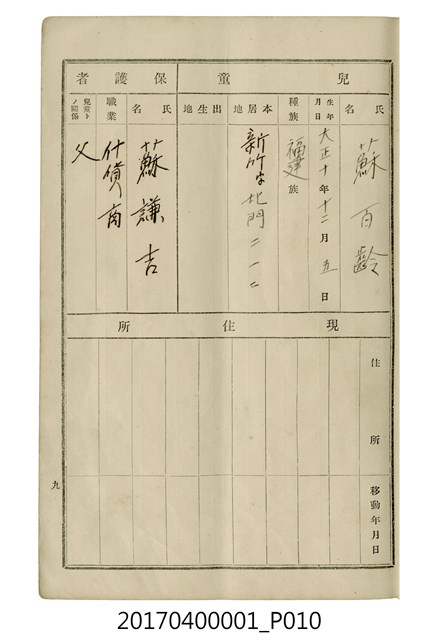 兒童
氏名 蘇百齡
生年月日 大正十年十二月五日
種族 福建族
本居地 新竹字北門二一二
出生地
保護者
氏名 蘇謙吉
職業 什貨商
兒童トノ關係 父
現住所
住所
移動年月日
九
20170400001_P010